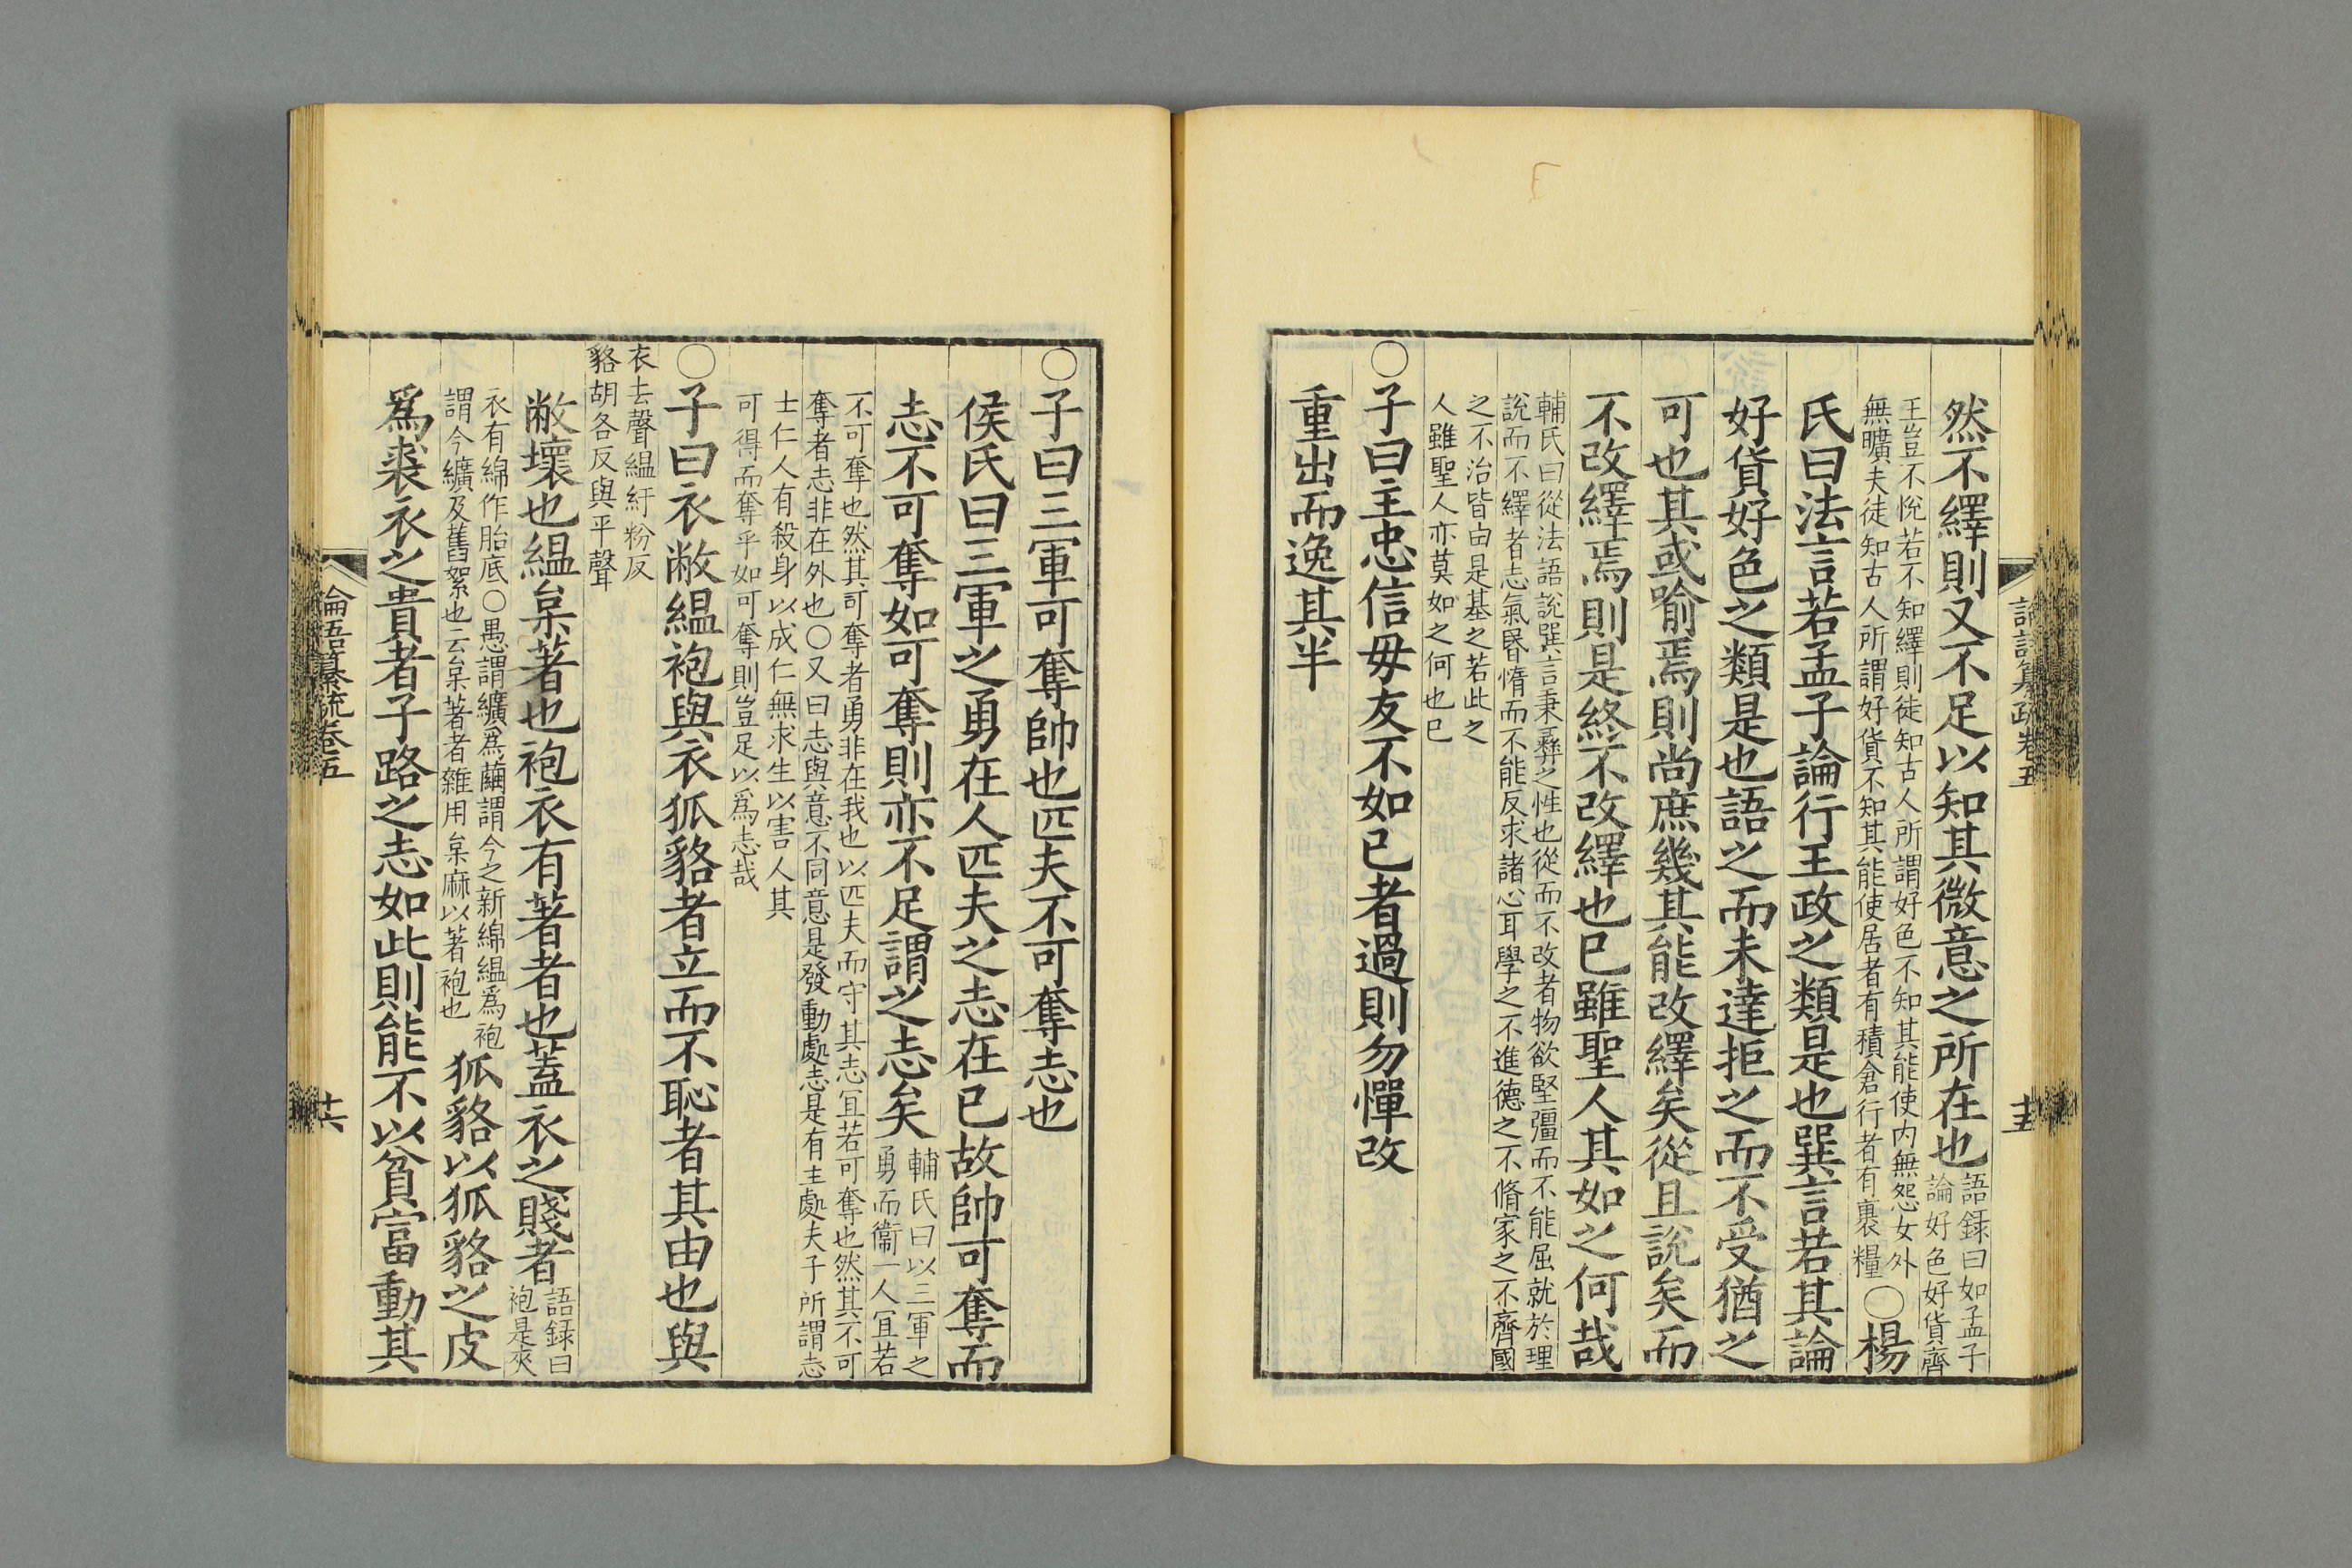 論語纂疏卷五
十五
然不繹則又不足以知其微意之所在也語録曰如孟子
論好色好貨齊
王豈不悅若不知繹則徒知古人所謂好色不知其能使内無怨女外
無曠夫徒知古人所謂好貨不知其能使居者有積倉行者有裹糧○楊
氏曰法言若孟子論行王政之類是也巽言若其論
好貨好色之類是也語之而未達拒之而不受猶之
可也其或喻焉則尚庶幾其能改繹矣從且說矣而
不改繹焉則是終不改繹也已雖聖人其如之何哉
輔氏曰從法語說巽言秉彞之性也從而不改者物欲堅彊而不能屈就於理
說而不繹者志氣昬惰而不能反求諸心耳學之不進德之不脩家之不齊國
之不治皆由是基之若此之
人雖聖人亦莫如之何也已
○子曰主忠信毋友不如已者過則勿憚改
重出而逸其半
○子曰三軍可奪帥也匹夫不可奪志也
侯氏曰三軍之勇在人匹夫之志在已故帥可奪而
志不可奪如可奪則亦不足謂之志矣輔氏曰以三軍之
勇而衞一人冝若
不可奪也然其可奪者勇非在我也以匹夫而守其志冝若可奪也然其不可
奪者志非在外也○又曰志與意不同意是發動處志是有主處夫子所謂志
士仁人有殺身以成仁無求生以害人其
可得而奪乎如可奪則豈足以爲志哉
○子曰衣敝緼袍與衣狐貉者立而不恥者其由也與
衣去聲緼紆粉反
貉胡各反與平聲
敝壞也緼枲著也袍衣有著者也蓋衣之賤者語録曰
袍是夾
衣有綿作胎底○愚謂纊爲繭謂今之新綿緼爲袍
謂今纊及舊絮也云枲著者雜用枲麻以著袍也狐貉以狐貉之皮
爲裘衣之貴者子路之志如此則能不以貧富動其
論語纂疏卷五
十六